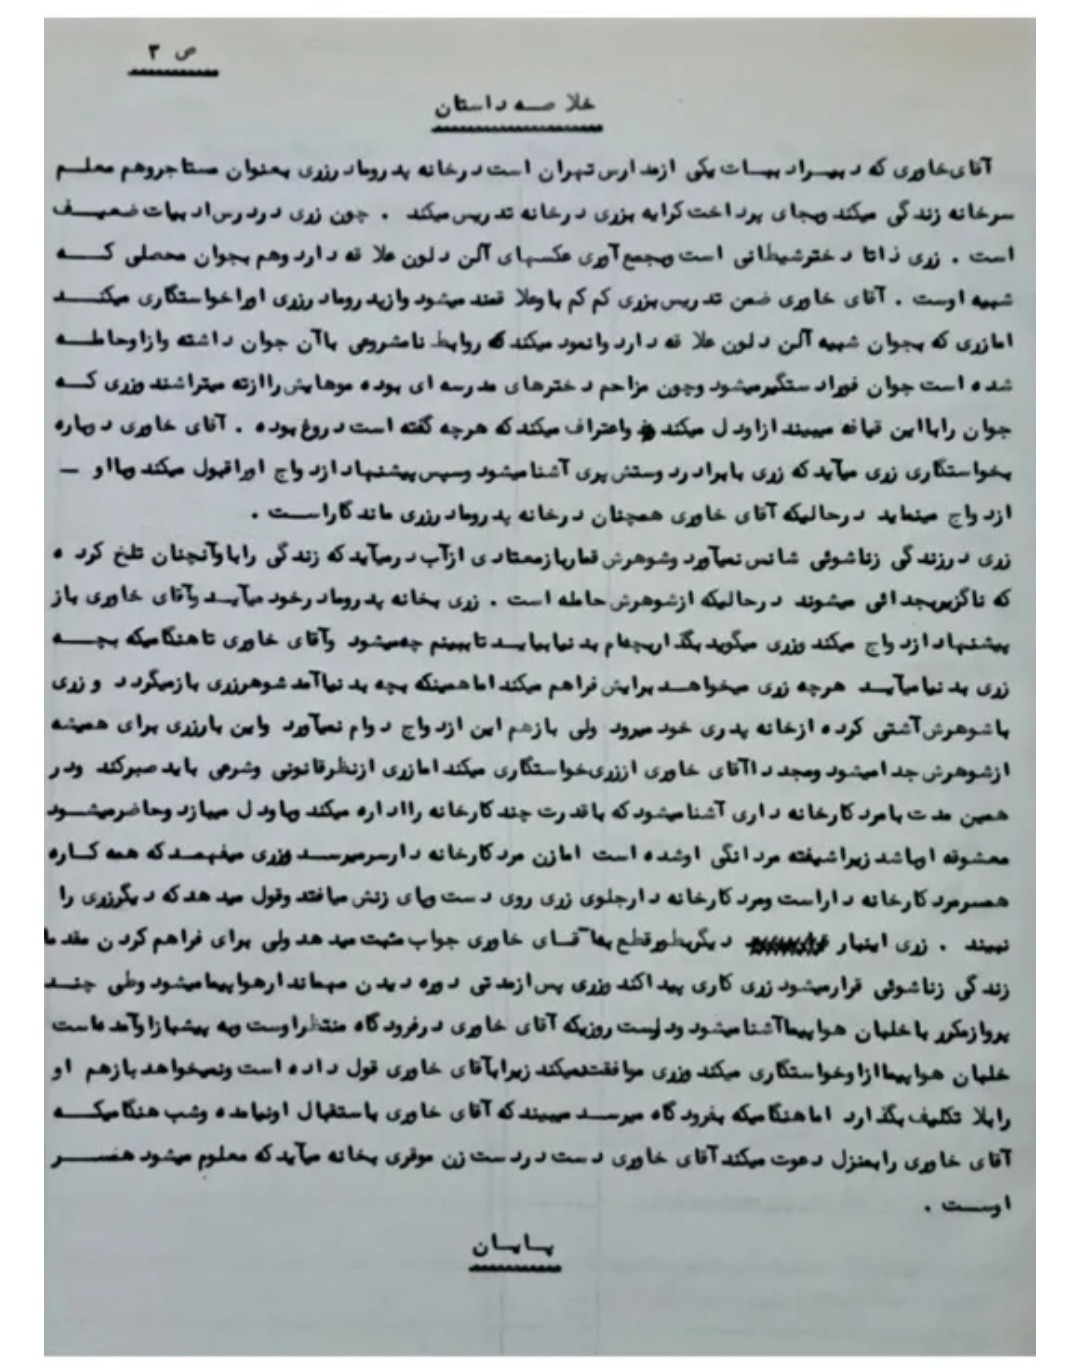 ص ۳
خلاصه داستان
آقای خاوری که دبیر ادبیات یکی از مدارس تهران است در خانه پدر و مادر زری بعنوان مستاجر و هم معلم
سرخانه زندگی میکند و بجای پرداخت کرایه بزری در خانه تدریس میکند . چون زری در درس ادبیات ضعیف
است . زری ذاتا دختر شیطانی است و بجمع آوری عکسهای آلن دلون علاقه دارد و هم بجوان محصلی که
شبیه اوست . آقای خاوری ضمن تدریس بزری کم کم باو علاقمند میشود و از پدر و مادر زری او را خواستگاری میکند
اما زری که بجوان شبیه آلن دلون علاقه دارد وانمود میکند که روابط نامشروعی با آن جوان داشته و از او حامله
شده است جوان فورا دستگیر میشود و چون مزاحم دخترهای مدرسه ای بوده موهایش را از ته میتراشند و زری که
جوان را با این قیافه میبیند از او دل میکند و اعتراف میکند که هرچه گفته است دروغ بوده . آقای خاوری دوباره
بخواستگاری زری میآید که زری با برادر دوستش پری آشنا میشود و سپس پیشنهاد ازدواج او را قبول میکند و با او –
ازدواج مینماید در حالیکه آقای خاوری همچنان در خانه پدر و مادر زری ماندگار است .
زری در زندگی زناشوئی شانس نمیآورد و شوهرش قمارباز معتادی از آب در میآید که زندگی را باو آنچنان تلخ کرده
که ناگزیر بجدائی میشوند در حالیکه از شوهرش حامله است . زری بخانه پدر و مادر خود میآید و آقای خاوری باز
پیشنهاد ازدواج میکند و زری میگوید بگذار بچه‌ام بدنیا بیاید تا ببینم چه میشود و آقای خاوری تا هنگامیکه بچه
زری بدنیا میآید هرچه زری میخواهد برایش فراهم میکند اما همینکه بچه بدنیا آمد شوهر زری باز میگردد و زری
با شوهرش آشتی کرده از خانه پدری خود میرود ولی باز هم این ازدواج دوام نمیآورد و این بار زری برای همیشه
از شوهرش جدا میشود و مجددا آقای خاوری از زری خواستگاری میکند اما زری از نظر قانونی و شرعی باید صبر کند و در
همین مدت با مرد کارخانه داری آشنا میشود که با قدرت چند کارخانه را اداره میکند و باو دل میبازد و حاضر میشود
معشوقه او باشد زیرا شیفته مردانگی او شده است اما زن مرد کارخانه دار سر میرسد و زری میفهمد که همه کاره
همسر مرد کارخانه دار است و مرد کارخانه دار جلوی زری روی دست و پای زنش میافتد و قول میدهد که دیگر زری را
نبیند . زری اینبار دیگر بطور قطع به آقای خاوری جواب مثبت میدهد ولی برای فراهم کردن مقدما
زندگی زناشوئی قرار میشود زری کاری پیدا کند و زری پس از مدتی دوره دیدن مهماندار هواپیما میشود و طی چند
پرواز مکرر با خلبان هواپیما آشنا میشود و درست روزیکه آقای خاوری در فرودگاه منتظر اوست و به پیشباز او آمده است
خلبان هواپیما از او خواستگاری میکند و زری موافقت نمیکند زیرا بآقای خاوری قول داده است و نمیخواهد باز هم او
را بلا تکلیف بگذارد اما هنگامیکه بفرودگاه میرسد میبیند که آقای خاوری باستقبال او نیامده و شب هنگامیکه
آقای خاوری را بمنزل دعوت میکند آقای خاوری دست در دست زن موقری بخانه میآید که معلوم میشود همسر
اوست .
پایان